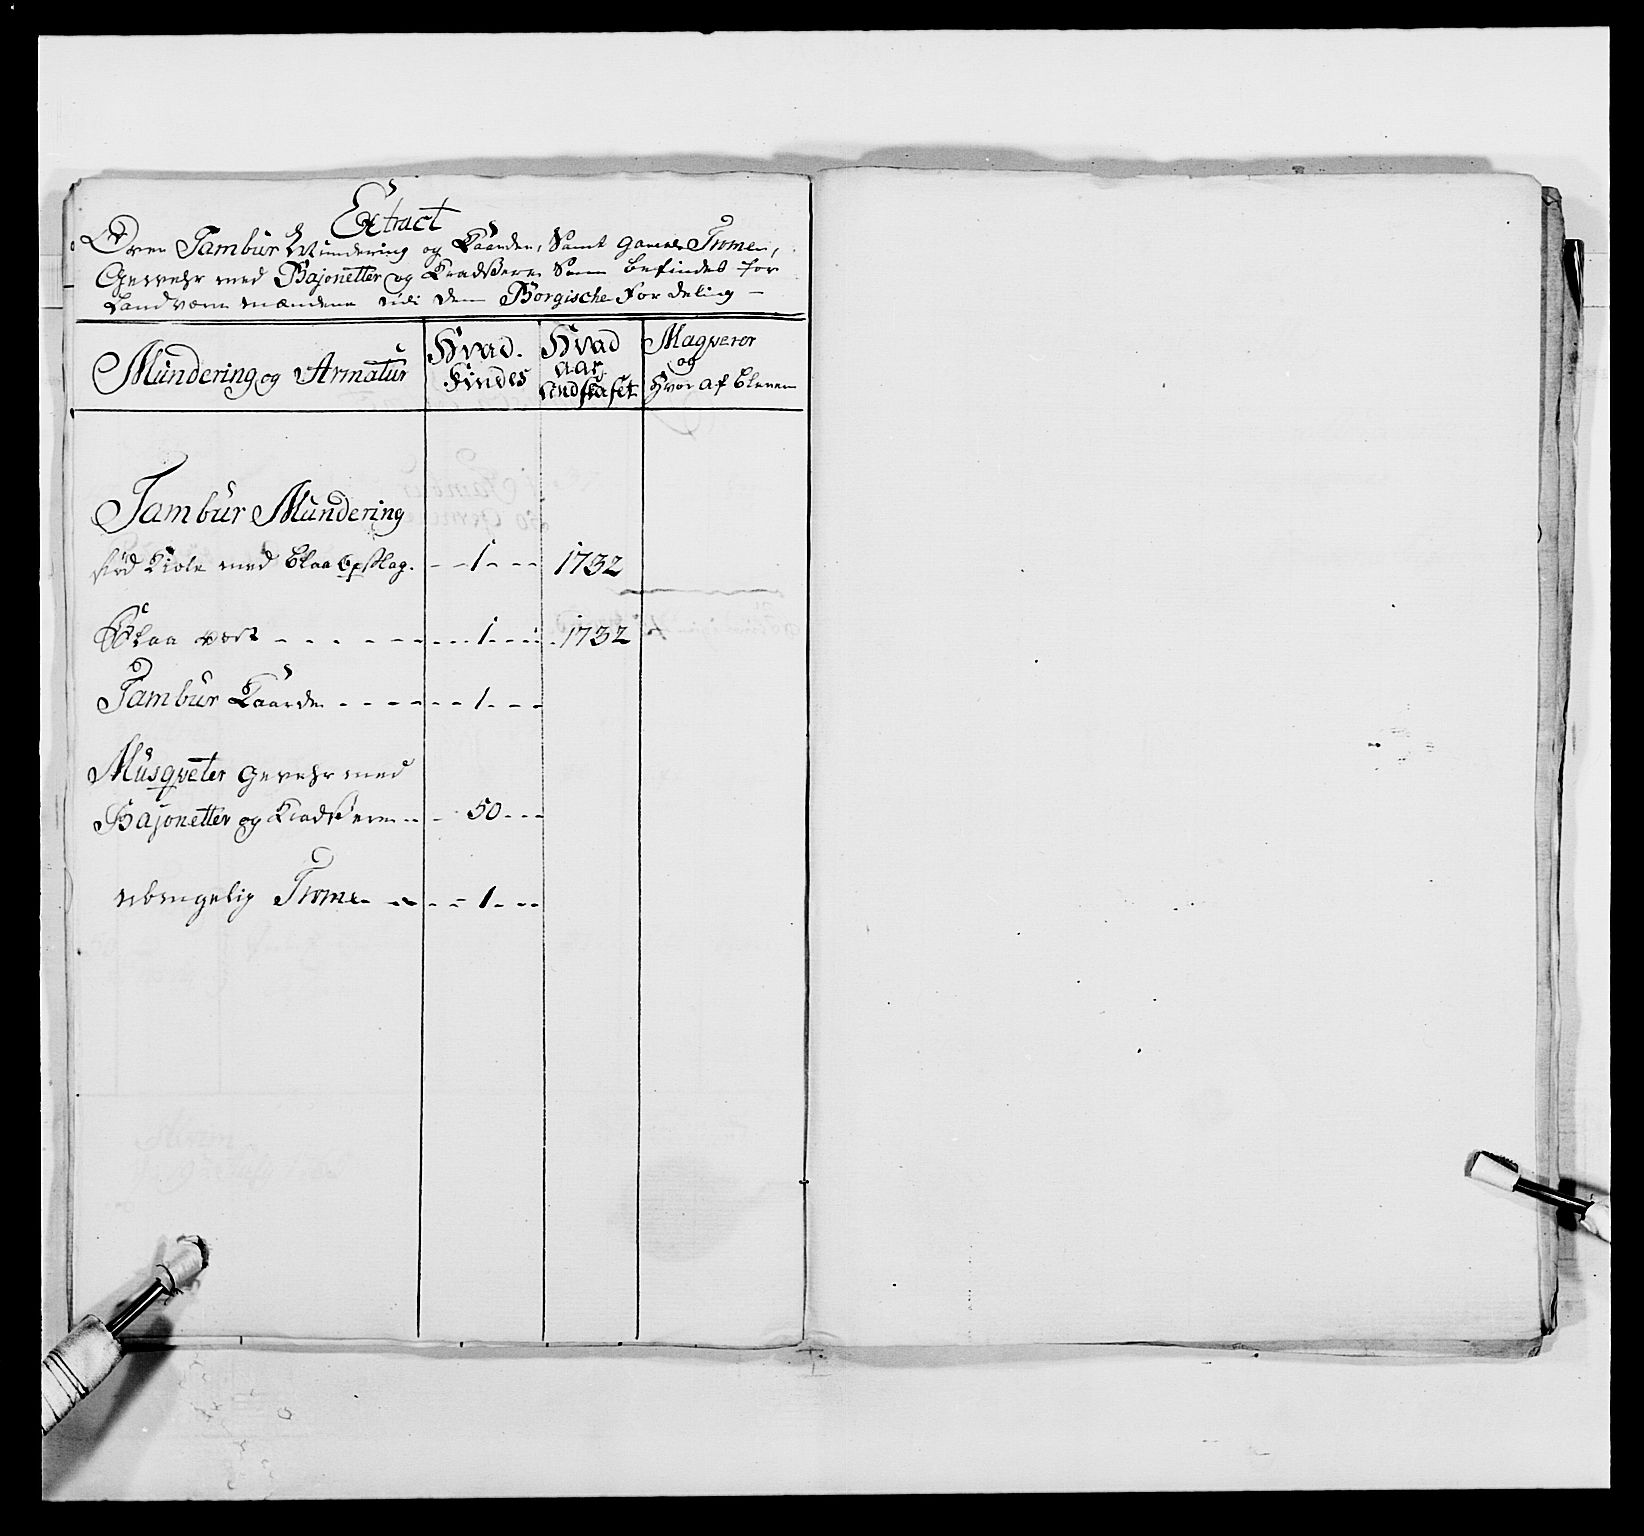 Extract
Over Tambur Mundering og Kaarde, Samt gamle Trome,
Gewehr med Bajonetter og Kradsere Som befindes for
Landværn mændene udi den Borgiske Fordeling –
Mundering og Armatur
Hvad findes
Hvad aar Andskafet
Maqverer og Hvor af bleven
Tambur Mundering
Rød Kiole med blaa Opslag. - - 1 - - - 1732
Blaa væst - - - - - - - - - 1 - - - 1732
Tambur Kaarde - - - - - - 1 - - -
Musqveter gevehr med
Bajonetter og Kradsere - - - 50 - - -
ubrugelig Trome - - - - 1 - - -